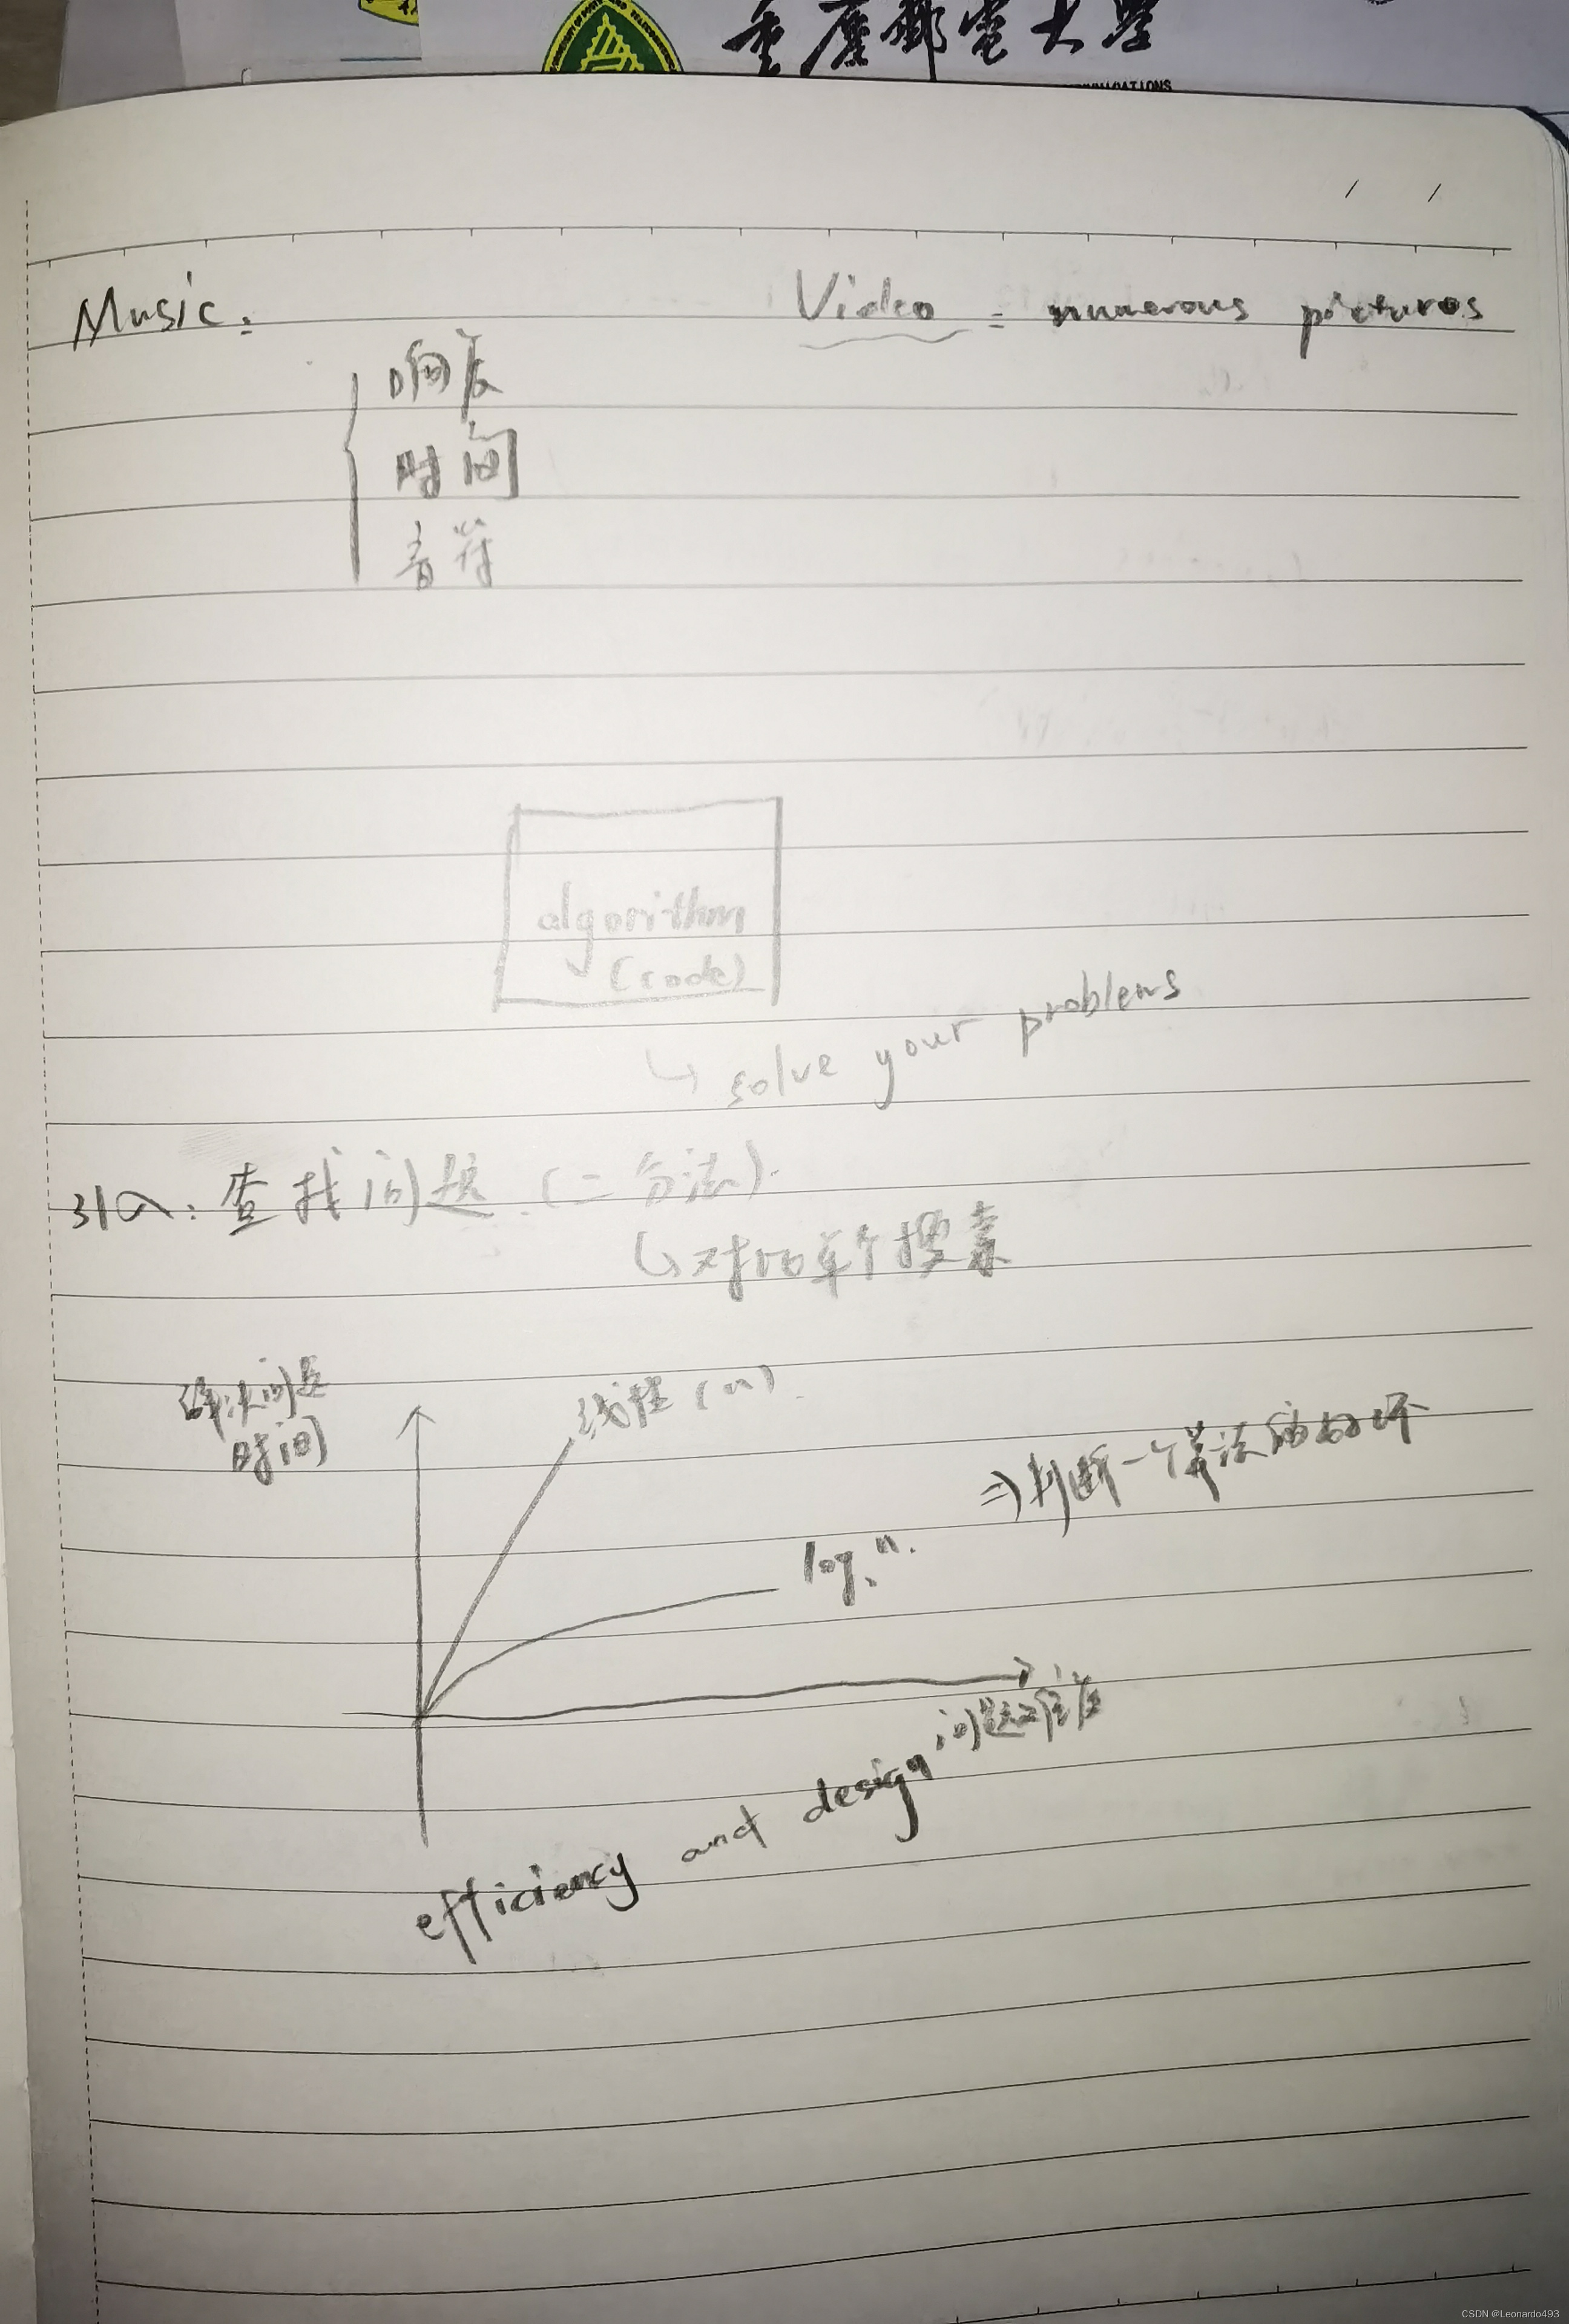 重慶郵電大學
Music:
Video: numerous pictures
响度
时间
音符
algorithm
(code)
↳ solve your problems
引入: 查找问题 (二分法).
↳ 对比单个搜索
解决问题
时间
线性 (n).
⇒ 判断一个算法的好坏
log₂n.
efficiency and design
CSDN @Leonardo493